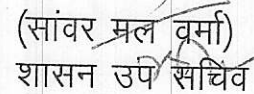 (सांवर मल वर्मा)
शासन उप सचिव